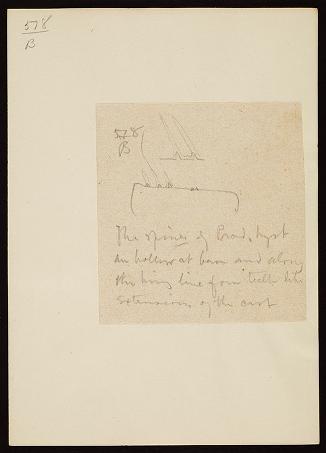 578
B
578
B
The spines of Prod. hyst
are hollow at base and along
the hinge line form teeth like
extensions of the cast